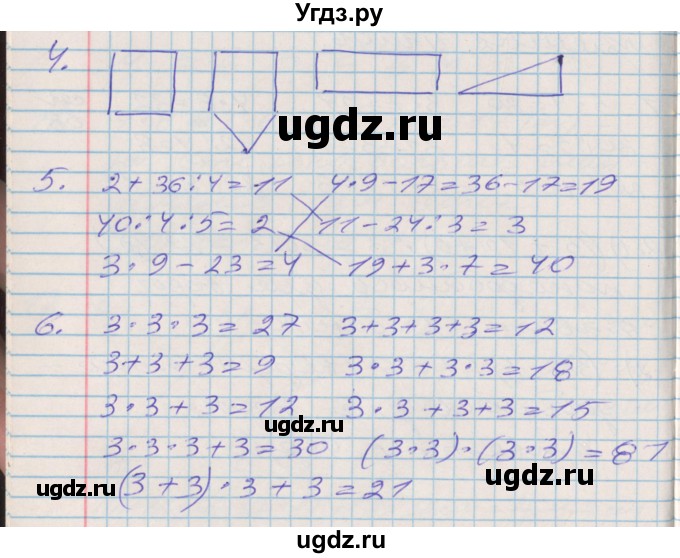 Угдз.ру
4.
ugdz.ru
5. 2 + 36 : 4 = 11 4 · 9 - 17 = 36 - 17 = 19
40 : 4 : 5 = 2 11 - 24 : 3 = 3
3 · 9 - 23 = 4 19 + 3 · 7 = 40
6. 3 · 3 · 3 = 27 3 + 3 + 3 + 3 = 12
3 + 3 + 3 = 9 3 · 3 + 3 · 3 = 18
3 · 3 + 3 = 12 3 · 3 + 3 + 3 = 15
ugdz.ru
3 · 3 · 3 + 3 = 30 (3 · 3) · (3 · 3) = 81
ugdz.ru (3 + 3) · 3 + 3 = 21
ugdz.ru
ugdz.ru